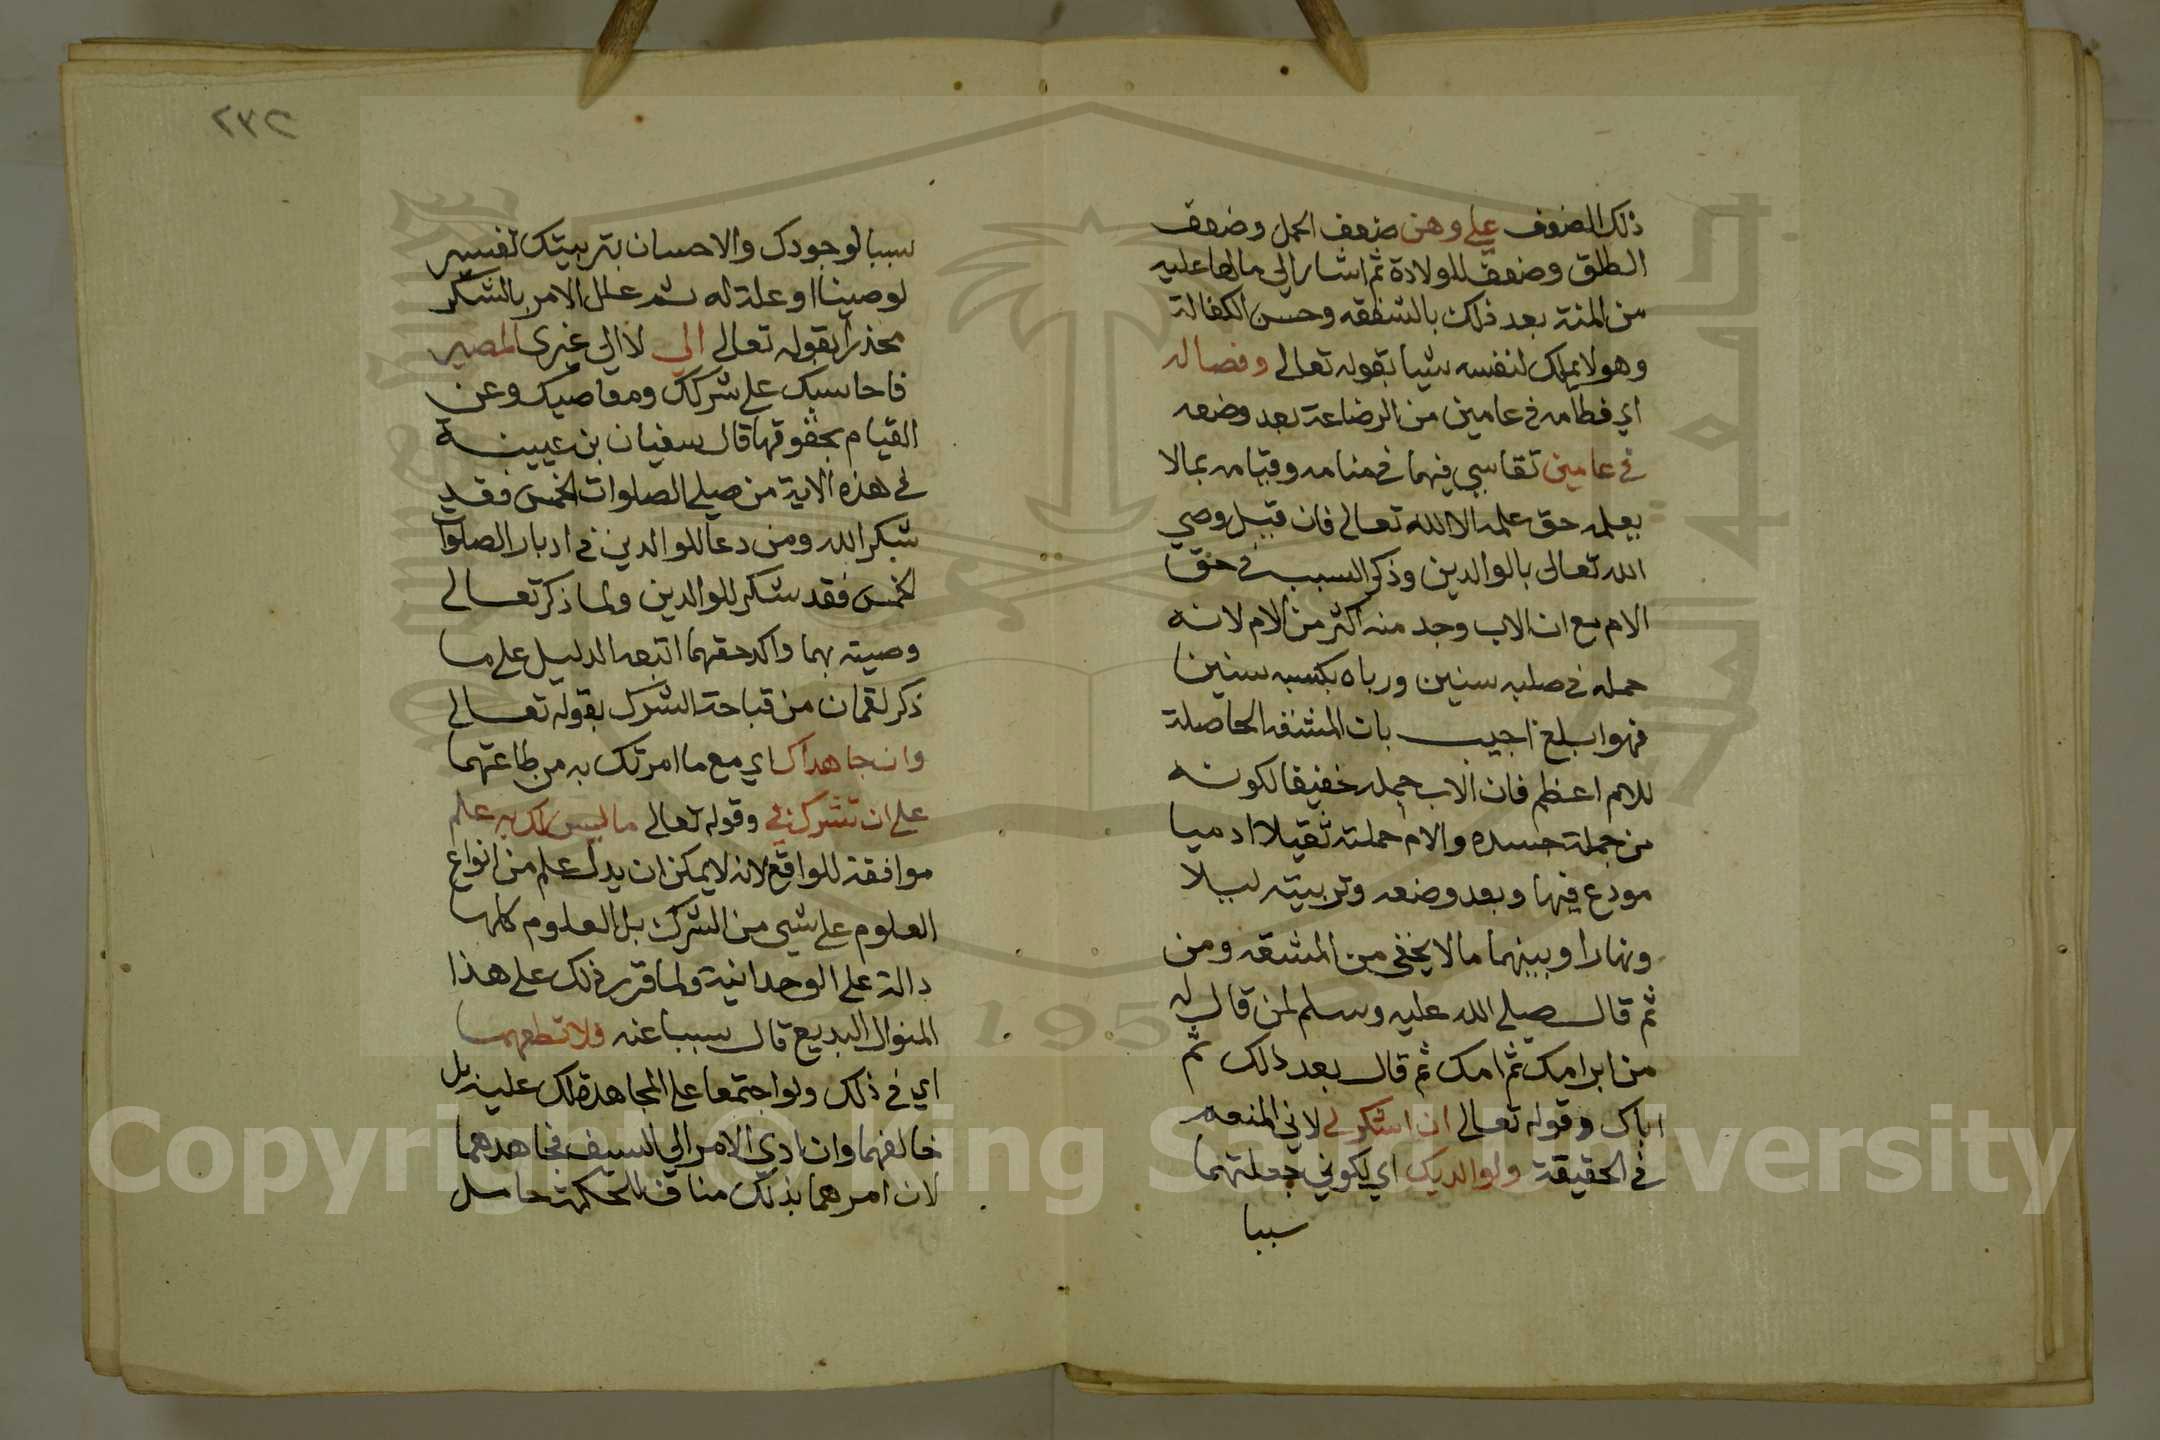 ذلك الضعف علي وهن ضعف الحمل وضعف
الطلق وضعف للولادة ثم اشار الي مالها عليه
من المنة بعد ذلك بالشفقه وحسن الكفالة
وهو لا يملك لنفسه شيا بقوله تعالي وفصاله
اي فطامه في عامين من الرضاعة بعد وضعه
في عامين تقاسي فيهما في منامه وقيامه بمالا
يعلمه حق علمه الا الله تعالي فان قيل وصي
الله تعالى بالوالدين وذكر السبب في حق
الام مع ان الاب وجد منه اكثر من الام لانه
حمله في صلبه سنين ورباه بكسبه سنين
فهو ابلغ اجيب بان المشقه الحاصلة
للام اعظم فان الاب حمله خفيفا لكونه
من جملة جسده والام حملته ثقيلا ادميا
مودع فيها وبعد وضعه وتربيته ليلا
ونهارا وبينهما مالا يخفى من المشقه ومن
ثم قال صلي الله عليه وسلم لمن قال له
من ابر امك ثم امك ثم قال بعد ذلك ثم
اباك وقوله تعالي ان اشكر لي لاني المنعم
في الحقيقة ولوالديك اي لكوني جعلتهما
سببا
٢٣٢
سببا لوجودك والاحسان بتربيتك تفسير
لوصينا او علة له ثم علل الامر بالشكر
محذرا بقوله تعالي الي لا الي غيري المصير
فاحاسبك علي شركك ومعاصيك وعن
القيام بحقوقها قال سفيان بن عيينة
في هذه الاية من صلي الصلوات الخمس فقد
شكر الله ومن دعا للوالدين في ادبار الصلوات
الخمس فقد شكر للوالدين ولما ذكر تعالي
وصيته بهما واكد حقهما اتبعه الدليل علي ما
ذكر لقمان من قباحة الشرك بقوله تعالي
وان جاهداك اي مع ما امرتك به من طاعتهما
علي ان تشرك بي وقوله تعالي ما ليس لك به علم
موافقة للواقع لانه لا يمكن ان يدل علم من انواع
العلوم علي شي من الشرك بل العلوم كلها
دالة علي الوحدانية ولما قرر ذلك علي هذا
المنوال البديع قال سببا عنه فلا تطعهما
اي في ذلك ولو اجتمعا علي المجاهدة لك عليه بل
خالفهما وان ادي الامر الي السيف فجاهدهما
لان امرهما بذلك مناف للحكمة حاصل
Copyright © King Saud University
1957